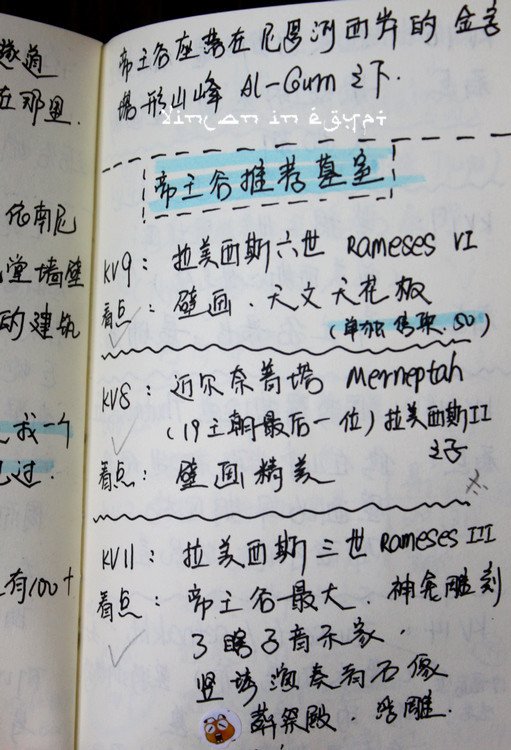 遂道
在那里.
依南尼
堂墙壁
的建筑
我一个
过.
有100+
帝王谷座落在尼罗河西岸的金字
塔形山峰 Al-Gurn 之下.
yincan in égypt
帝王谷推荐墓室
KV9: 拉美西斯六世 Rameses VI
看点: 壁画. 天文天花板
(单独售取.50)
KV8: 迈尔奈普塔 Merneptah
(19王朝最后一位) 拉美西斯II
之子
看点: 壁画精美
KV11: 拉美西斯三世 Rameses III
看点: 帝王谷最大. 神龛雕刻
了瞎子音乐家.
竖琴演奏者石像
祭殿. 浮雕.